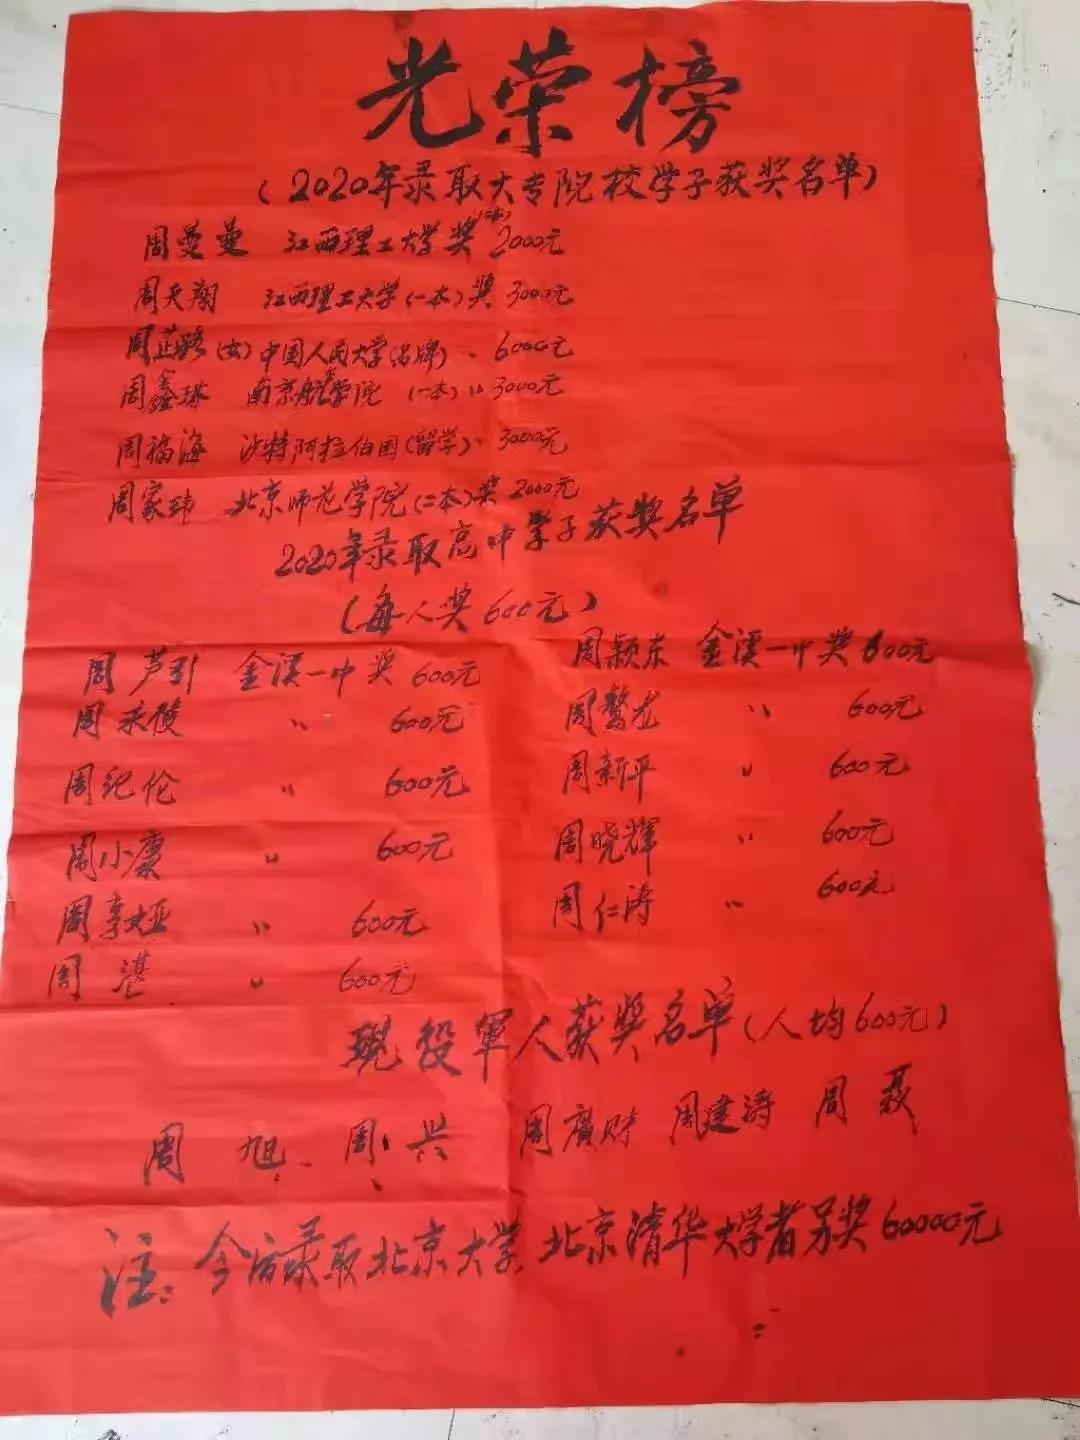 光荣榜
(2020年录取大专院校学子获奖名单)
周曼曼 江西理工大学奖(二本)2000元
周天翔 江西理工大学(一本)奖3000元
周芷路(女)中国人民大学(名牌)、6000元
周鑫琳 南京航空学院(一本)〃3000元
周福海 沙特阿拉伯国(留学)、3000元
周家玮 北京师范学院(二本)奖2000元
2020年录取高中学子获奖名单
(每人奖600元)
周芦引 金溪一中奖600元 周颖东 金溪一中奖600元
周禾俊 〃 600元 周鳌龙 〃 600元
周纪伦 〃 600元 周新平 〃 600元
周小康 〃 600元 周晓辉 〃 600元
周 〃 600元 周仁涛 〃 600元
周湛 〃 600元
现役軍人获奖名单(人均600元)
周旭、周兴、周廣财 周建涛 周聂
注:今后录取北京大学 北京清华大学者另奖60000元